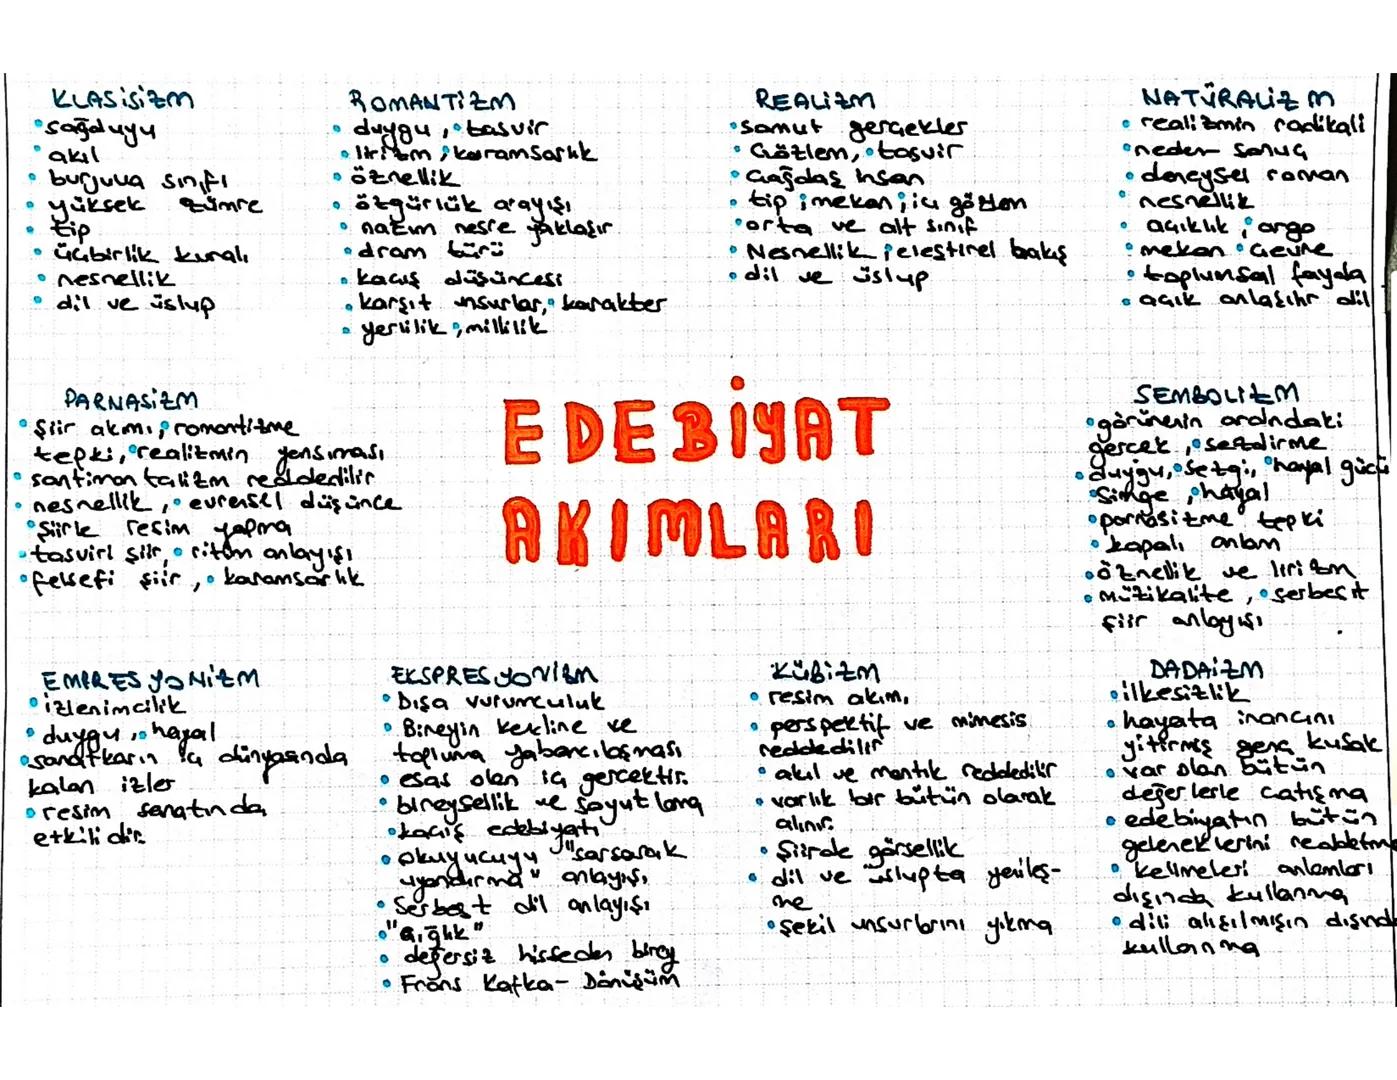 KLASİSİZM
sağduyu
akıl
burjuva sınıfı
yüksek zümre
tip
üçbirlik kuralı
nesnellik
dil ve üslup
ROMANTİZM
duygu, tasvir
lirizm, karamsarlık
öznellik
özgürlük arayışı
nazım nesre yaklaşır
dram türü
kaçış düşüncesi
karşıt unsurlar, karakter
yerlilik, millilik
REALİZM
somut gerçekler
Gözlem, tasvir
Çağdaş insan
tip, mekan, iç gözlem
orta ve alt sınıf
Nesnellik, eleştirel bakış
dil ve üslup
NATÜRALİZM
realizmin radikali
neden sonuç
deneysel roman
nesnellik
açıklık, argo
mekan çevre
toplumsal fayda
açık anlaşılır dil
EDEBİYAT
AKIMLARI
PARNASİZM
Şiir akımı, romantizme
tepki, realizmin yansıması
santimantalizm reddedilir
nesnellik, evrensel düşünce
şiirle resim yapma
tasviri şiir, ritim anlayışı
felsefi şiir, karamsarlık
SEMBOLİZM
görünenin ardındaki
gerçek, sezdirme
duygu, sezgi, hayal gücü
Simge, hayal
parnasizme tepki
kapalı anlam
öznellik ve lirizm
müzikalite, serbest
şiir anlayışı
EMPRESYONİZM
izlenimcilik
duygu, hayal
sanatkarın iç dünyasında
kalan izler
resim sanatında
etkilidir.
EKSPRESYONİZM
Dışa vurumculuk
Bireyin kendine ve
topluma yabancılaşması
esas olan iç gerçektir.
bireysellik ve soyutlama
kaçış edebiyatı
okuyucuyu "sarsarak
uyandırma" anlayışı
Serbest dil anlayışı
"Çığlık"
değersiz hisseden birey
Frans Kafka - Dönüşüm
KÜBİZM
resim akımı
perspektif ve mimesis
reddedilir
akıl ve mantık reddedilir
varlık bir bütün olarak
alınır.
Şiirde görsellik
dil ve üslupta yenileş-
me
şekil unsurlarını yıkma
DADAİZM
ilkesizlik
hayata inancını
yitirmiş genç kuşak
var olan bütün
değerlerle çatışma
edebiyatın bütün
geleneklerini reddetme
kelimeleri anlamları
dışında kullanma
dili alışılmışın dışında
kullanma